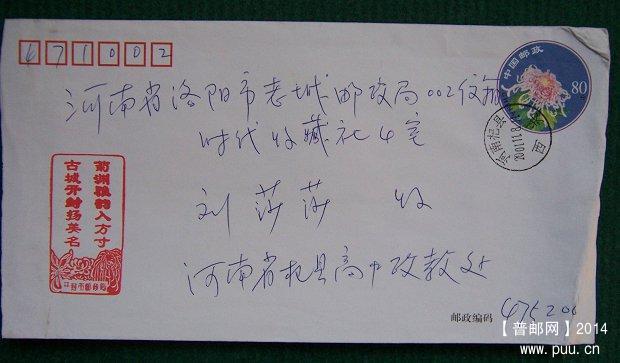 471002
中国邮政
80
河南省洛阳市老城邮政局002信箱
时代收藏社4室
河南杞县
2001.11.8
刘莎莎 收
菊洲雅韵入方寸
古城开封扬美名
开封市邮政局
河南省杞县高中政教处
邮政编码 475200
【普邮网】2014
www.puu.cn